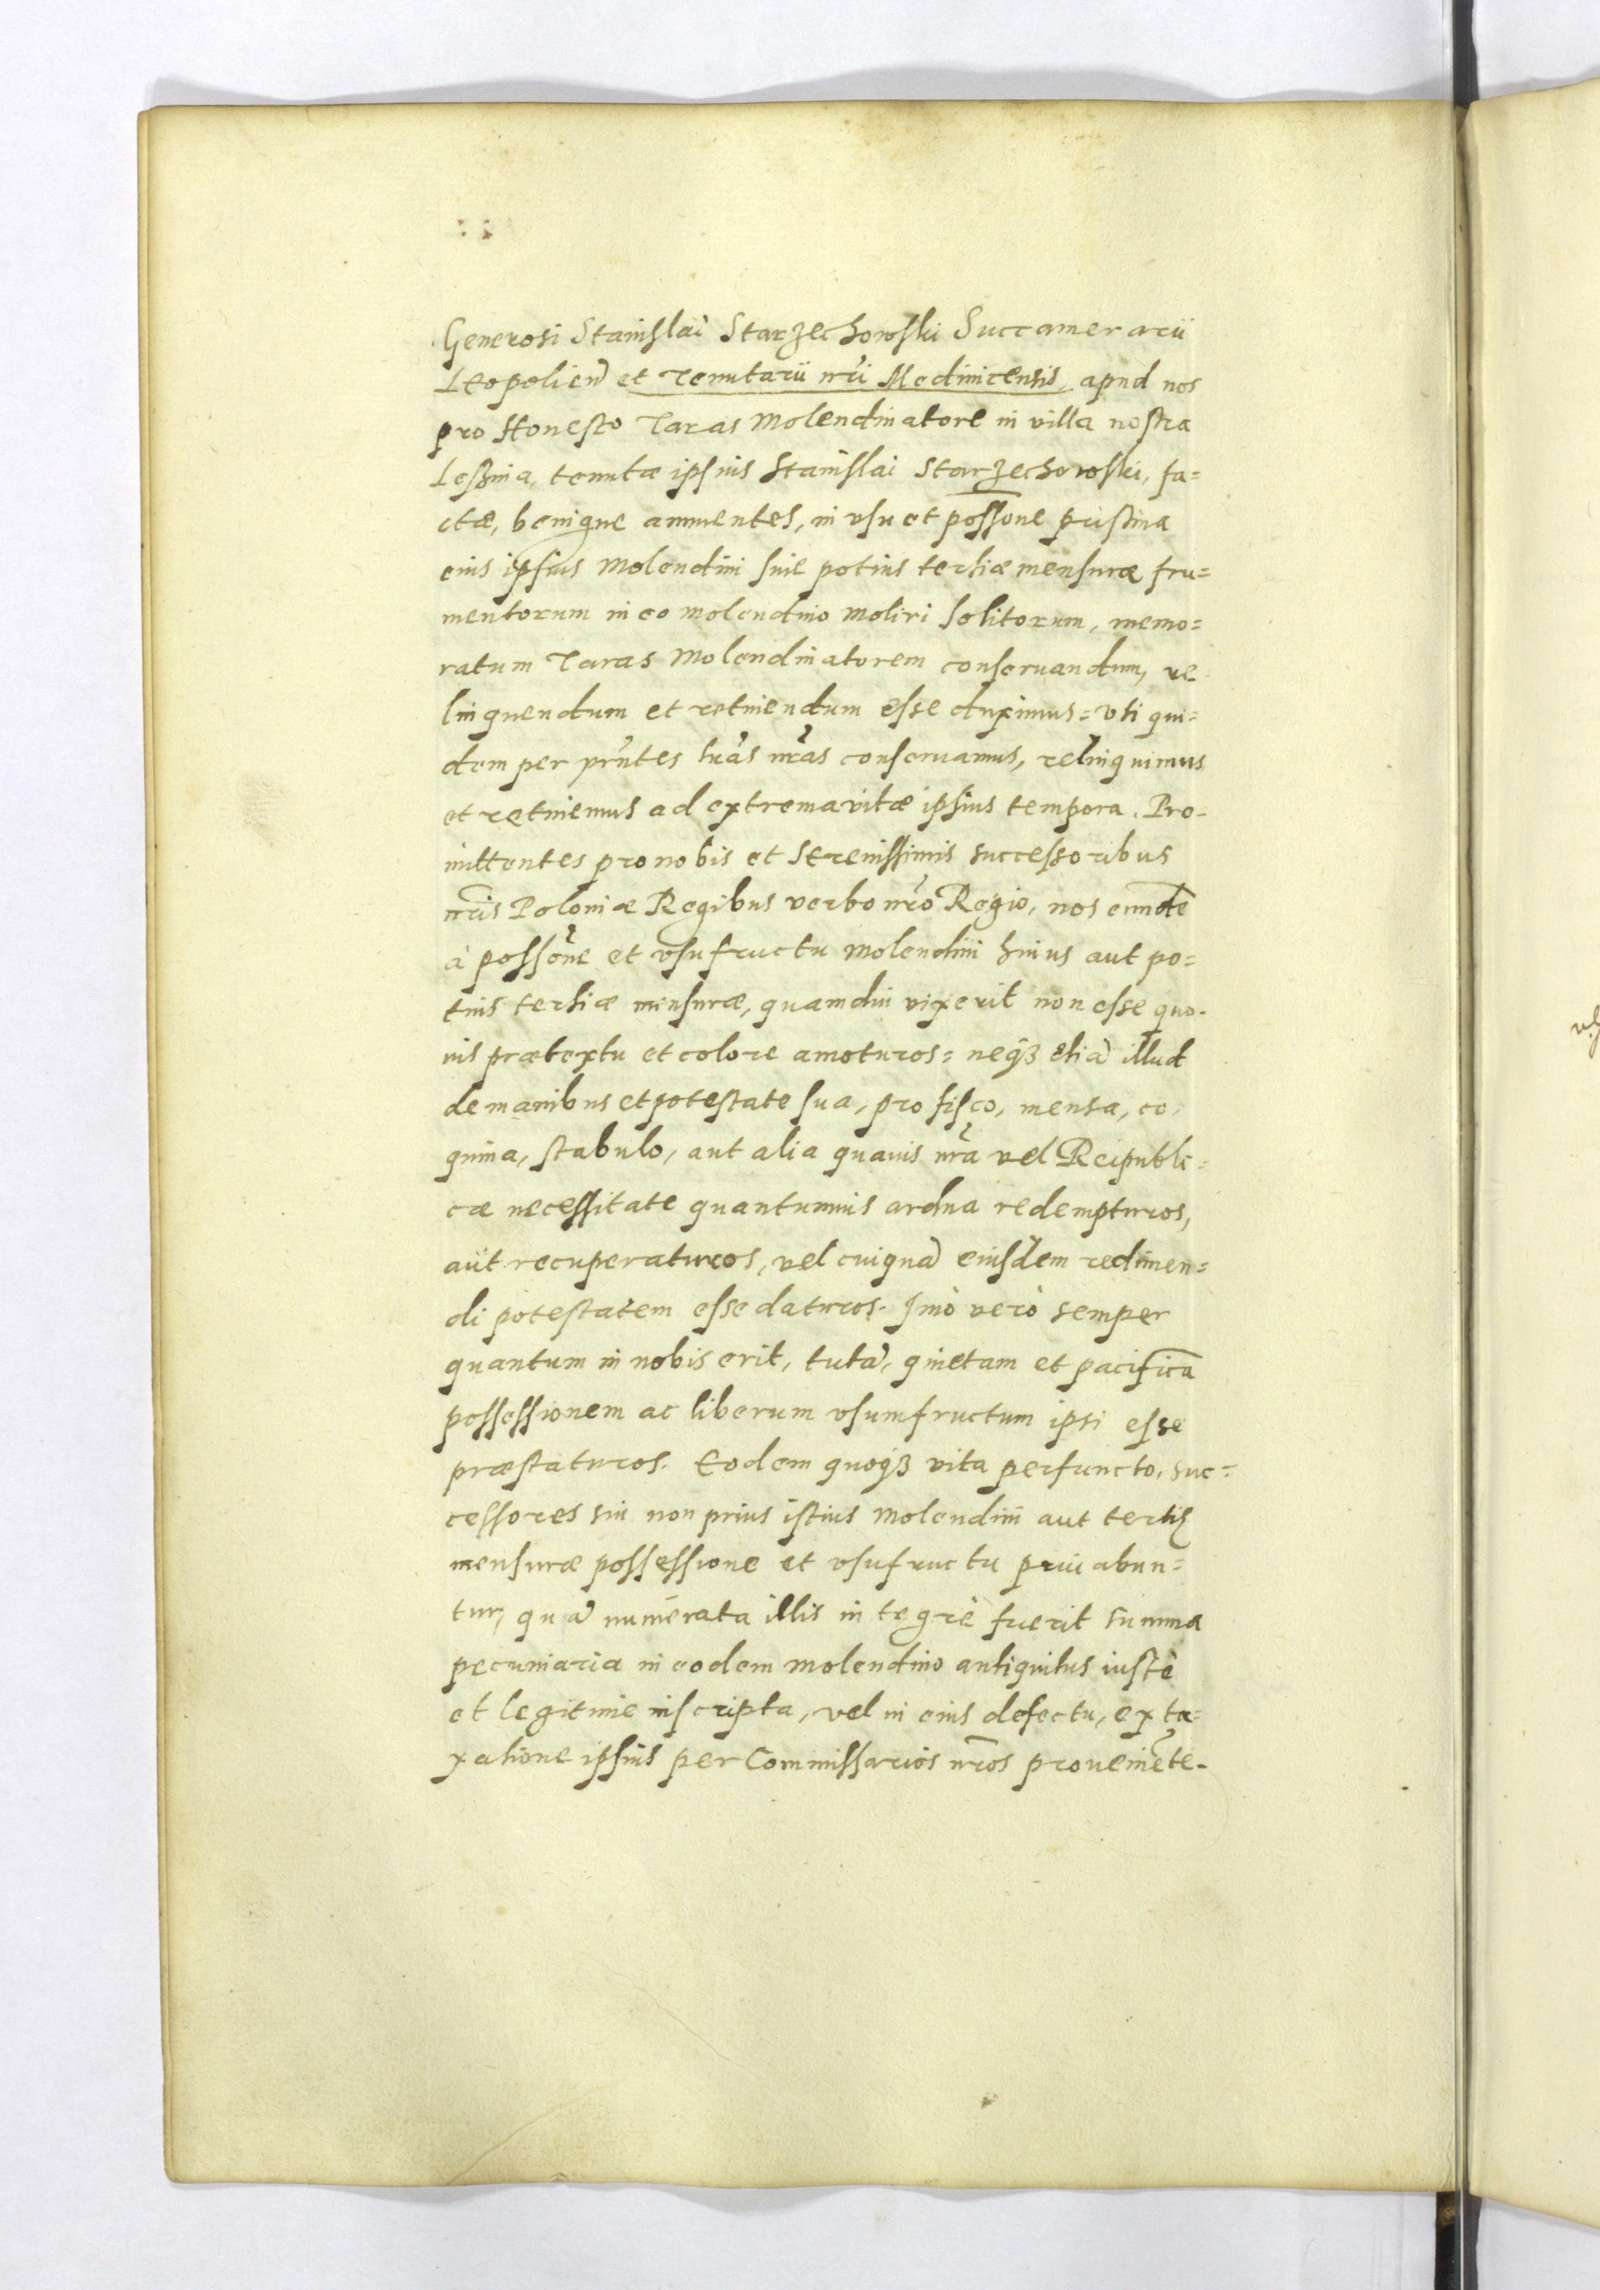 Generosi Stanislai Starzechowski Succamerarii
Leopolien̄ et Tenutarii nr̃i Medinicensis, apud nos
pro Honesto Taras Molendinatore in villa nostra
Leßnia, tenutæ ipsius Stanislai Starzechowski, fa=
ctæ, benigne annuentes, in vsu et possōne pristina
eius ipsius Molendini siue potius tertiæ mensuræ fru=
mentorum in eo molendino moliri solitorum, memo=
ratum Taras Molendinatorem conseruandum, re
linquendum et retinendum esse duximus = vti qui=
dem per pñtes lr̃as nr̃as conseruamus, relinquimus
et retinemus ad extrema vitæ ipsius tempora. Pro-
mittentes pro nobis et Serenissimis successoribus
nr̃is Poloniæ Regibus verbo nr̃o Regio, nos eundē
à possōne et vsufructu Molendini huius aut po=
tius tertiæ mensuræ, quamdiu vixerit non esse quo-
uis prætextu et colore amoturos = neqꝫ etiā illud
de manibus et potestate sua, pro fisco, mensa, co
quina, stabulo, aut alia quauis nr̃a vel Reipubli=
cæ necessitate quantumuis ardua redempturos,
aut recuperaturos, vel cuiquā eiusdem redimen=
di potestatem esse daturos. Imò verò semper
quantum in nobis erit, tutā, quietam et pacificā
possessionem ac liberum vsumfructum ipsi esse
præstaturos. Eodem quoqꝫ vita perfuncto, suc=
cessores sui non prius istius Molendini aut tertię
mensuræ possessione et vsufructu priuabun=
tur, quā numerata illis integrè fuerit summa
pecuniaria in eodem molendino antiquitus iustè
et legitime inscripta, vel in eius defectu, ex ta=
xatione ipsius per Commissarios nr̃os proueniēte-